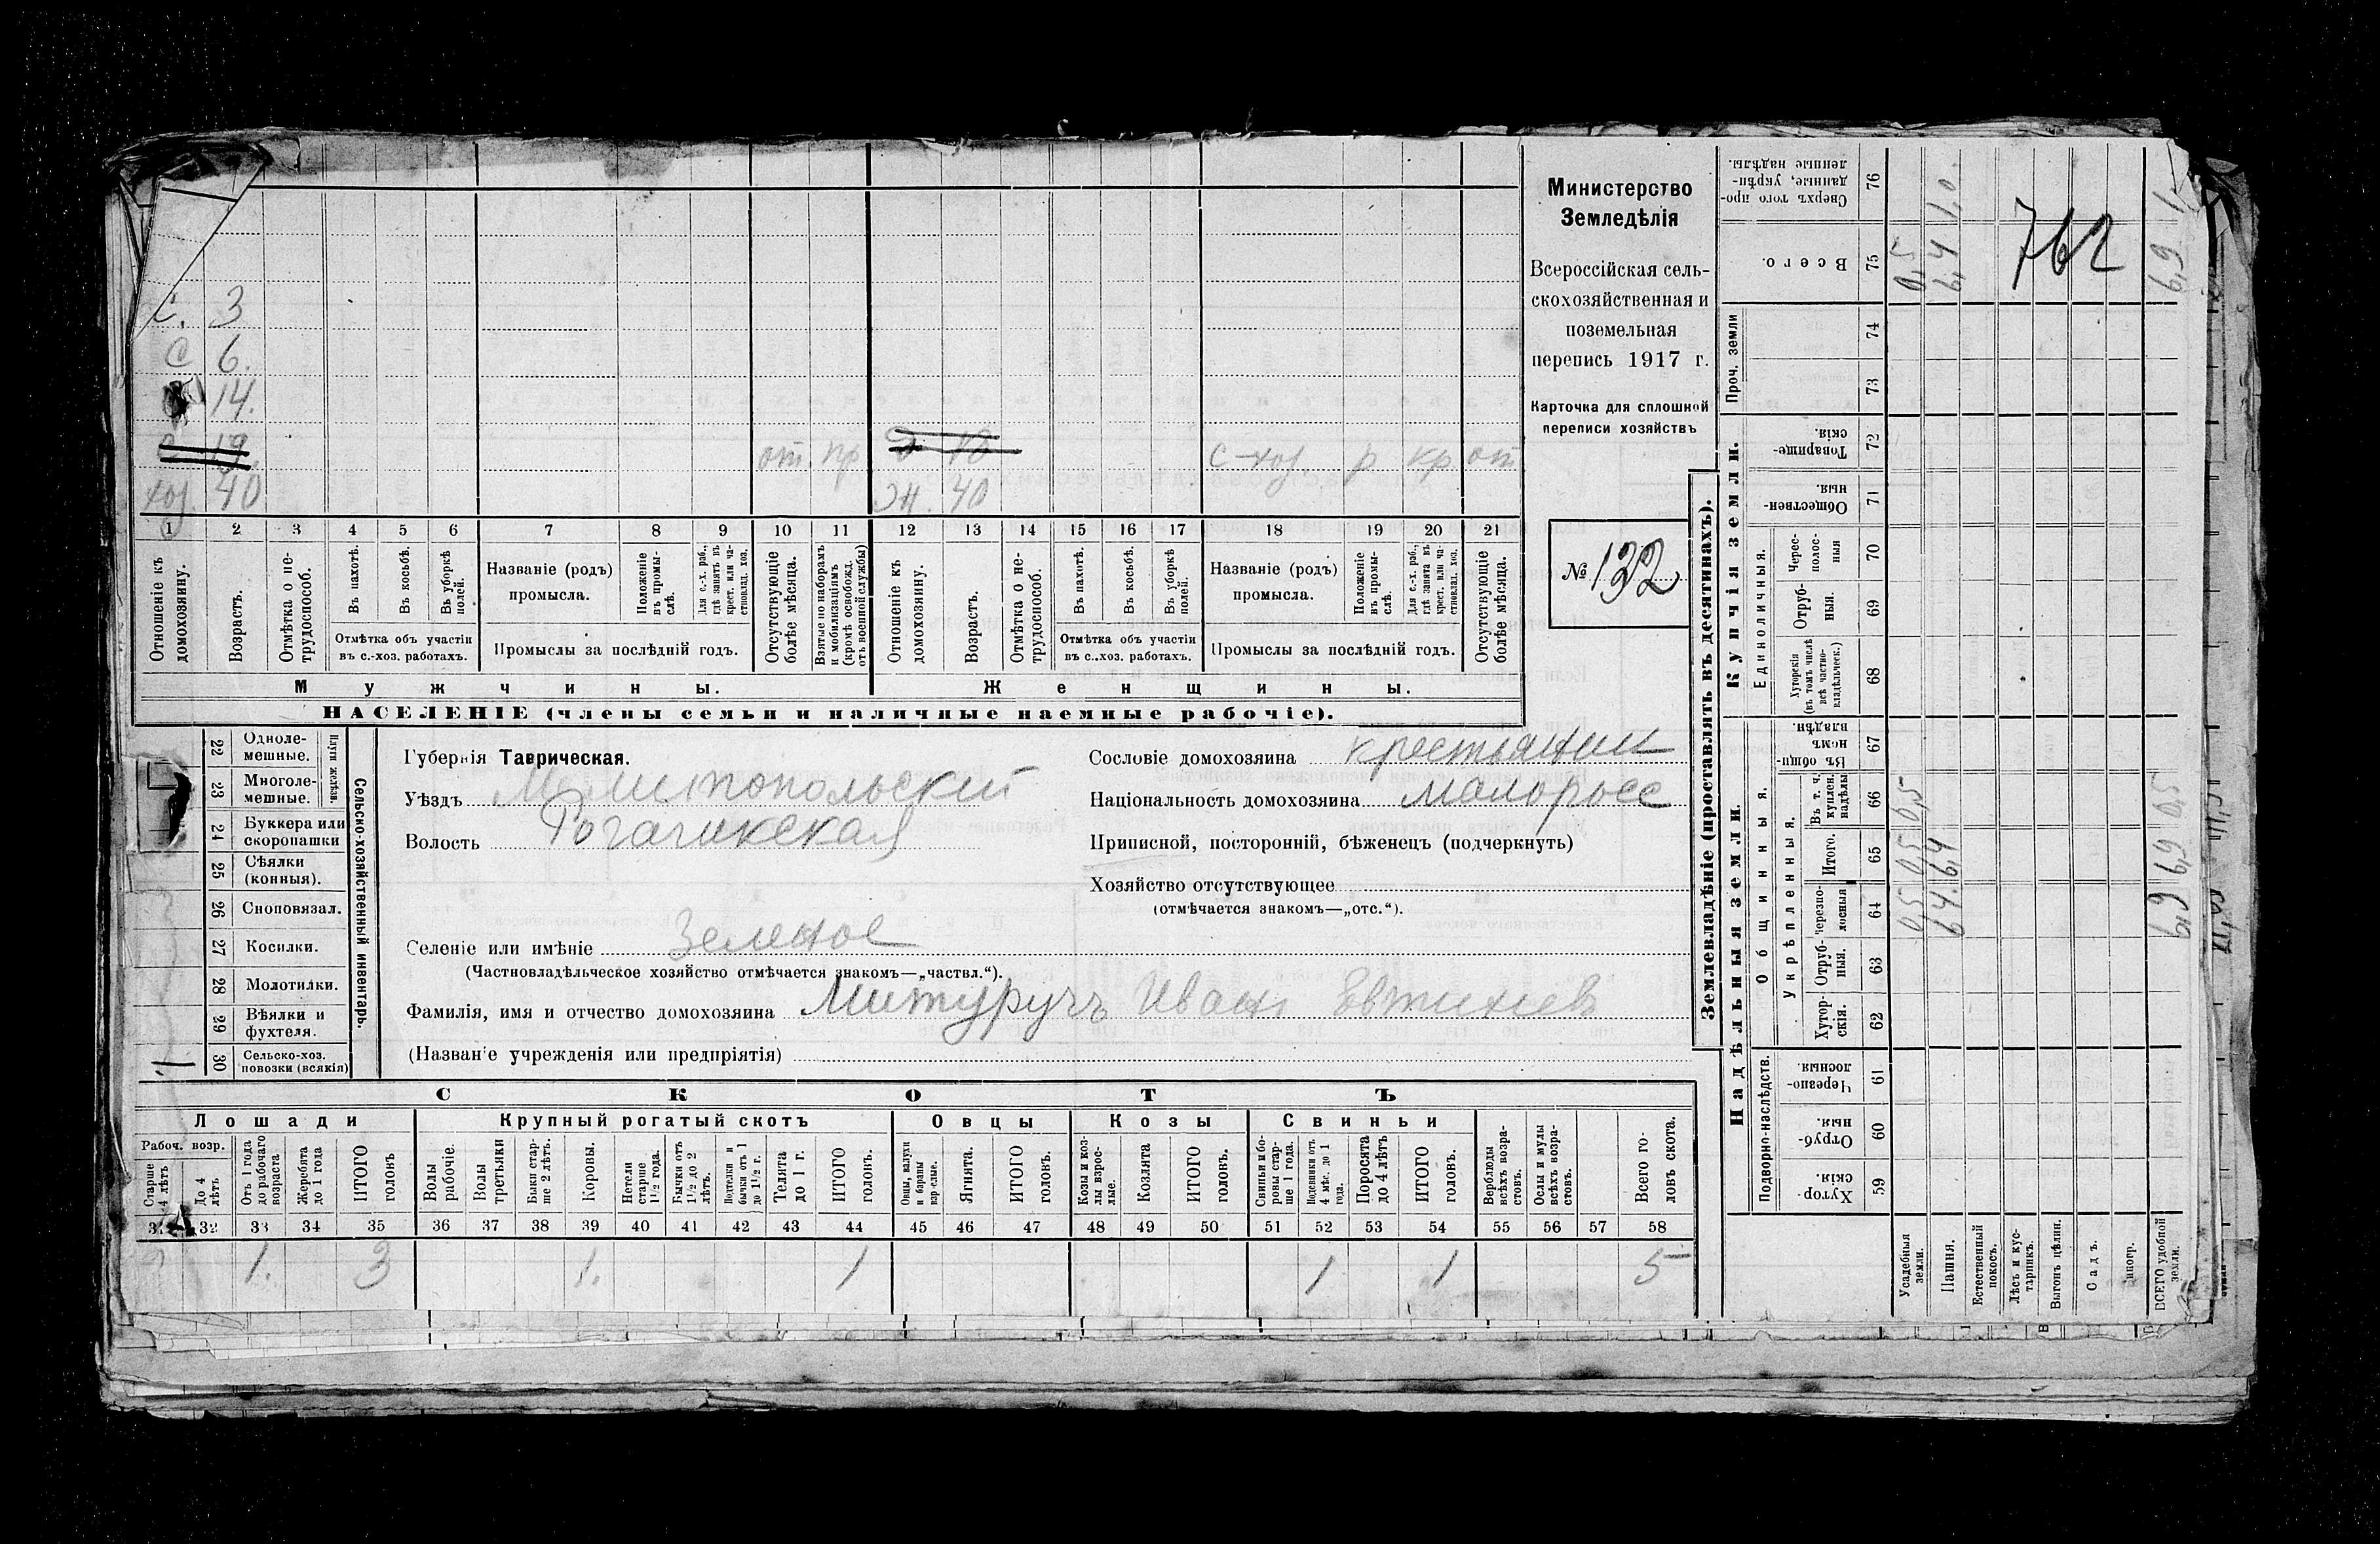 с. 3
с 6.
14.
с 19.
от. пр д 18 с-хоз. р кр. от
хоз. 40
ж. 40
1 2 3 4 5 6 7 8 9 10 11 12 13 14 15 16 17 18 19 20 21
Отношеніе къ домохозяину.
Возрастъ.
Отмѣтка о нетрудоспособ.
Въ пахотѣ.
Въ косьбѣ.
Въ уборкѣ полей.
Отмѣтка объ участіи
въ с.-хоз. работахъ.
Названіе (родъ)
промысла.
Положеніе въ промыслѣ.
Для с.-х. раб., гдѣ занятъ въ крест. или частновлад. хоз.
Промыслы за послѣдній годъ.
Отсутствующіе болѣе мѣсяца.
Взятые по наборамъ и мобилизаціямъ (кромѣ освобожд. отъ военной службы)
Отношеніе къ домохозяину.
Возрастъ.
Отмѣтка о нетрудоспособ.
Въ пахотѣ.
Въ косьбѣ.
Въ уборкѣ полей.
Отмѣтка объ участіи
въ с.-хоз. работахъ.
Названіе (родъ)
промысла.
Положеніе въ промыслѣ.
Для с.-х. раб., гдѣ занята въ крест. или частновлад. хоз.
Промыслы за послѣдній годъ.
Отсутствующіе болѣе мѣсяца.
Мужчины. Женщины.
НАСЕЛЕНІЕ (члены семьи и наличные наемные рабочіе).
Министерство
Земледѣлія
Всероссійская сель-
скохозяйственная и
поземельная
перепись 1917 г.
Карточка для сплошной
переписи хозяйствъ
№ 132
22 Одноле-
мешные.
23 Многоле-
мешные.
Плуги желѣзн.
24 Буккера или
скоропашки
25 Сѣялки
(конныя).
26 Сноповязал.
27 Косилки.
28 Молотилки.
29 Вѣялки и
фухтеля.
1 30 Сельско-хоз.
повозки (всякія)
Сельско-хозяйственный инвентарь.
Губернія Таврическая.
Уѣздъ Мелитопольскій
Волость Рогачикская
Селеніе или имѣніе Зеленое
(Частновладѣльческое хозяйство отмѣчается знакомъ—„частвл.“).
Фамилія, имя и отчество домохозяина Митуручъ Иванъ Евтихіев
(Названіе учрежденія или предпріятія)
Сословіе домохозяина крестьянин
Національность домохозяина малоросс
Приписной, посторонній, бѣженецъ (подчеркнуть)
Хозяйство отсутствующее
(отмѣчается знакомъ—„отс.“).
СКОТЪ
Лошади Крупный рогатый скотъ Овцы Козы Свиньи
Рабоч. возр.
Старше 4 лѣтъ
До 4 лѣтъ
Отъ 1 года до рабочаго возраста
Жеребята до 1 года
ИТОГО головъ
Волы рабочіе.
Волы третьяки
Быки старше 2 лѣтъ.
Коровы.
Нетели старше 1½ года.
Бычки отъ 1½ до 2 лѣтъ.
Подтелки и бычки отъ 1 до 1½ г.
Телята до 1 г.
ИТОГО головъ.
Овцы, валухи и бараны взрослые.
Ягнята.
ИТОГО головъ.
Козы и козлы взрослые.
Козлята
ИТОГО головъ.
Свиньи и боровы старше 1 года.
Подсвинки отъ 4 мѣс. до 1 года.
Поросята до 4 лѣтъ
ИТОГО головъ.
Верблюды всѣхъ возрастовъ.
Ослы и мулы всѣхъ возрастовъ.
Всего головъ скота.
31 32 33 34 35 36 37 38 39 40 41 42 43 44 45 46 47 48 49 50 51 52 53 54 55 56 57 58
1. 3 1. 1 1 1 5
Землевладѣніе (проставлять въ десятинахъ).
Надѣльныя земли. Купчія земли.
Проч. земли
Подворно-наслѣдств.
Общинныя.
Укрѣпленныя.
Единоличныя.
Сверхъ того проданные, укрѣпленные надѣлы. 76
Всего. 75
74
73
Товарищескія. 72
Общественныя. 71
Черезполосныя 70
Отрубныя. 69
Хуторскія (въ томъ числѣ всѣ частновладѣльческ.) 68
Въ общинномъ владѣн. 67
Въ т. ч. куплен. надѣлы 66
Итого. 65
Черезполосныя 64
Отрубныя. 63
Хуторскія. 62
Черезполосныя. 61
Отрубныя. 60
Хуторскія. 59
Усадебныя земли. 0,5 0,5 0,5 0,5
Пашня. 6,4 6,4 6,4 1,0
Естественный покосъ.
Лѣсъ и кустарникъ.
Выгонъ цѣлин.
Садъ.
ВСЕГО удобной земли. 6,9 6,9 0,5 6,9 1
762